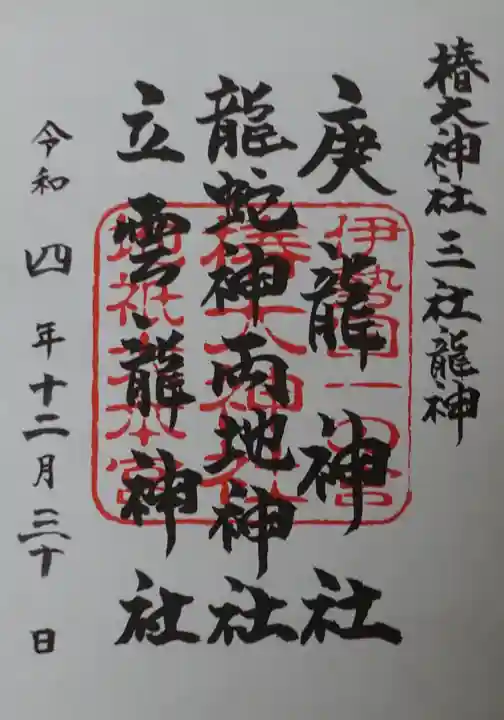 椿大神社三社龍神
庚龍神社
龍蛇神両地神社
立雲龍神社
令和四年十二月三十日
伊勢国一の宮
椿大神社
地祇大本宮